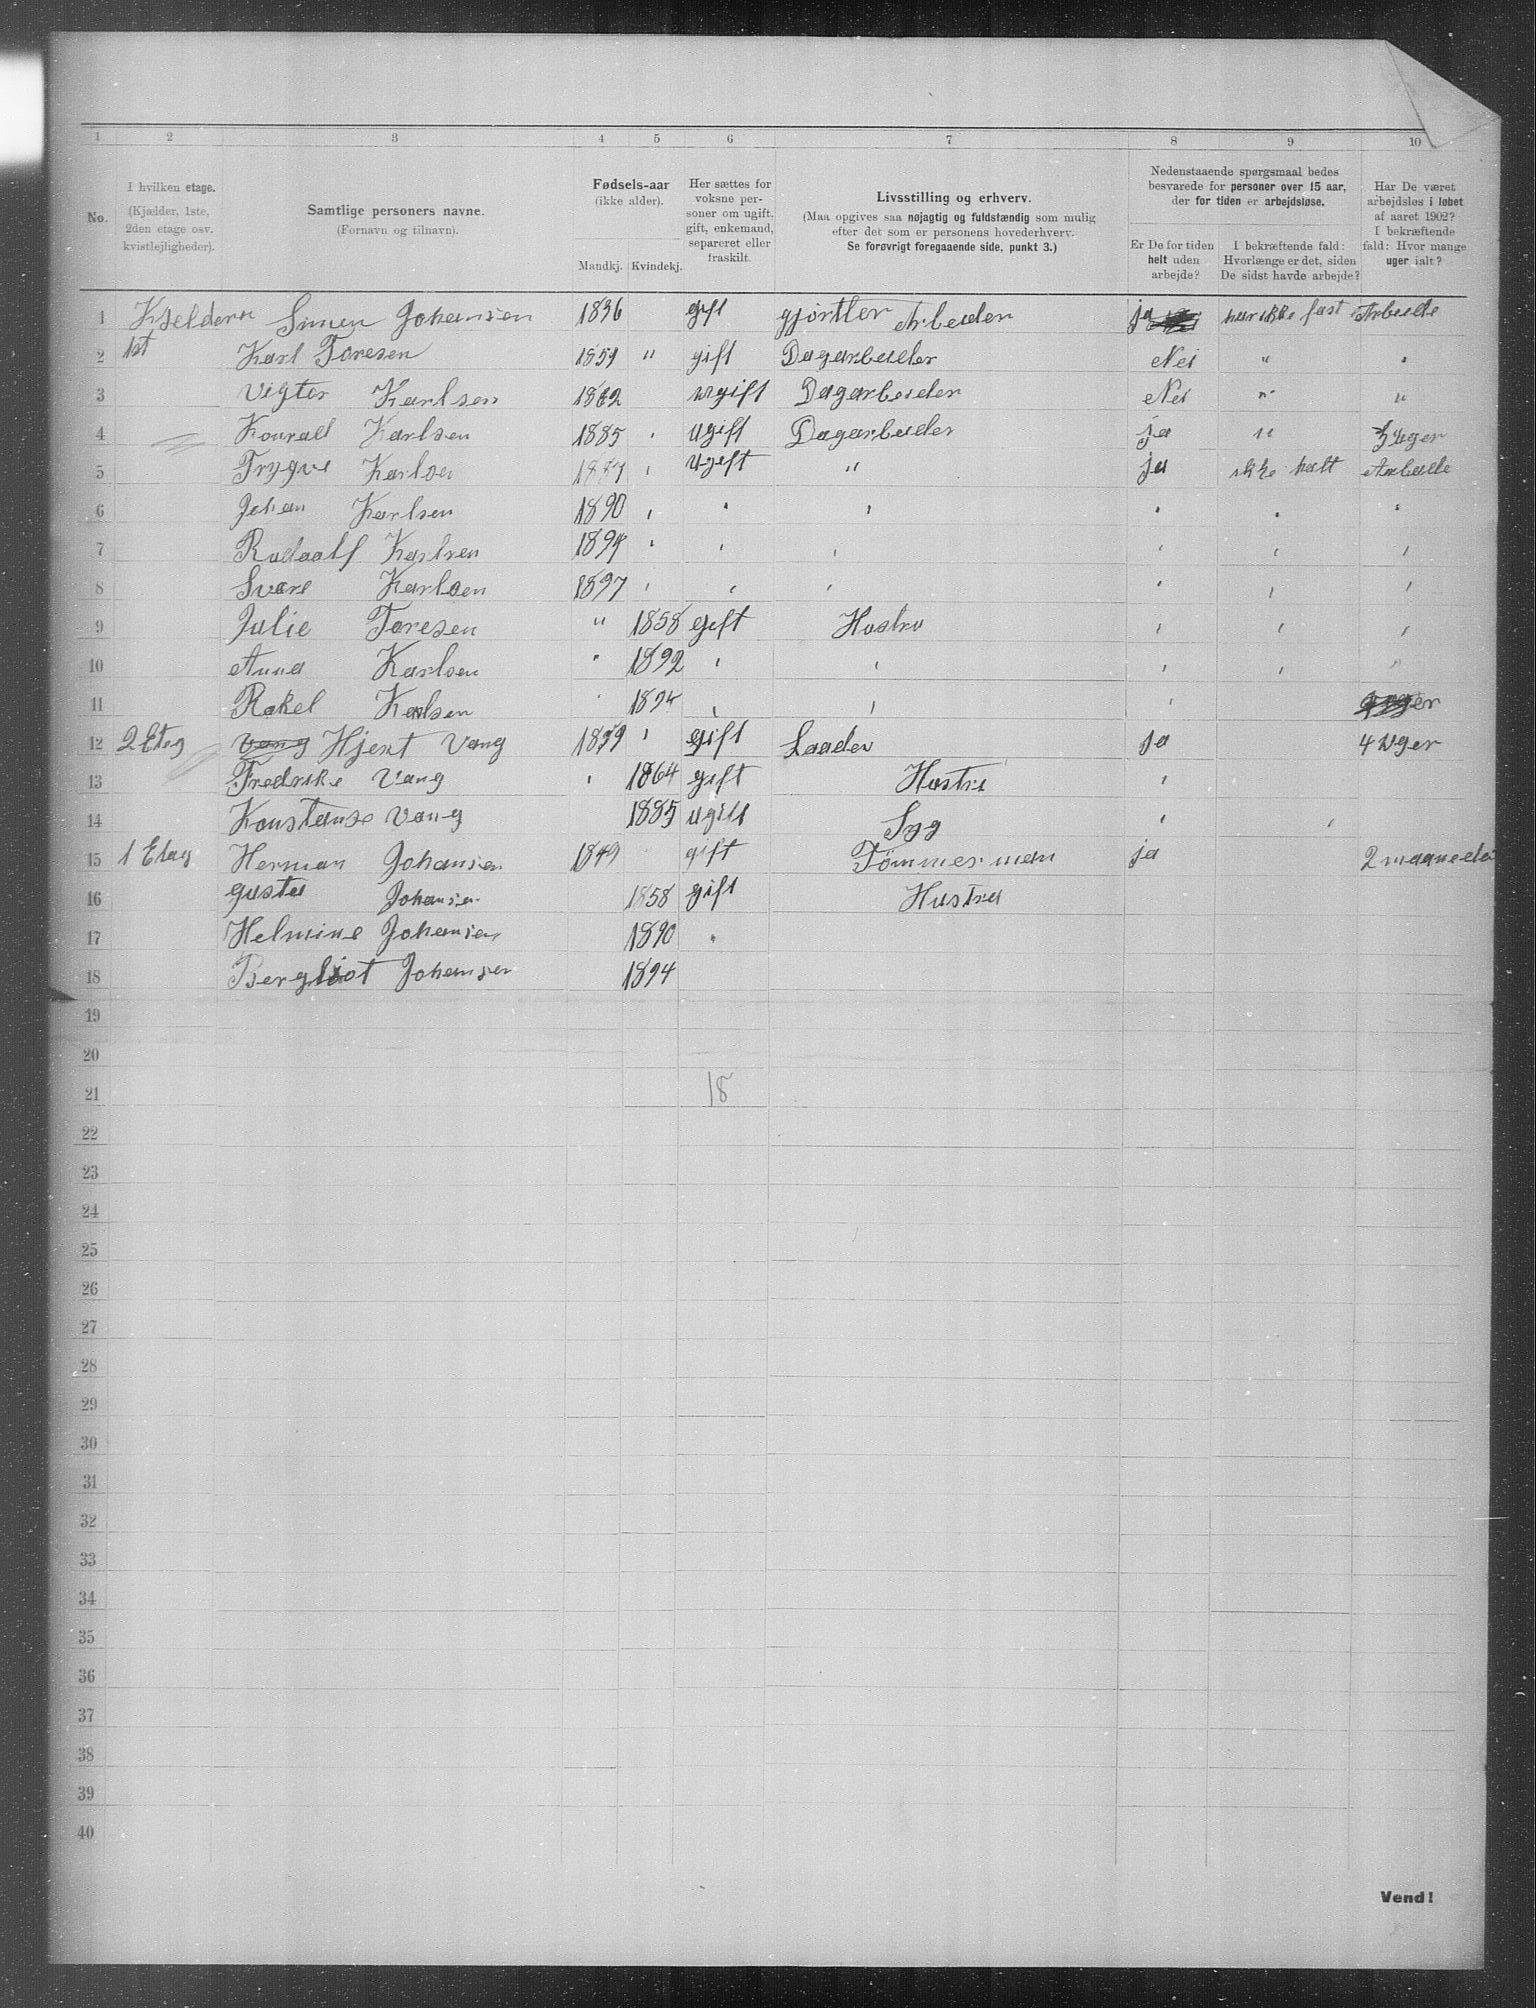 1 2 3 4 5 6 7 8 9 10
No.
I hvilken etage.
(Kjælder, 1ste,
2den etage osv.
kvistlejligheder).
Samtlige personers navne.
(Fornavn og tilnavn).
Fødsels-aar
(ikke alder).
Mandkj. Kvindekj.
Her sættes for
voksne per-
soner om ugift,
gift, enkemand,
separeret eller
fraskilt.
Livsstilling og erhverv.
(Maa opgives saa nøjagtig og fuldstændig som mulig
efter det som er personens hovederhverv.
Se forøvrigt foregaaende side, punkt 3.)
Nedenstaaende spørgsmaal bedes
besvarede for personer over 15 aar,
der for tiden er arbejdsløse.
Er De for tiden
helt uden
arbejde?
I bekræftende fald:
Hvorlænge er det, siden
De sidst havde arbejde?
Har De været
arbejdsløs i løbet
af aaret 1902?
I bekræftende
fald: Hvor mange
uger ialt?
1 Kjeldern Simen Johansen 1836 gift gjørtler Arbeider ja har ikke fast Arbeide
2 1st Karl Toresen 1859 " gift Dagarbeider Nei " "
3 Vigtor Karlsen 1882 ugift Dagarbeider Nei " "
4 Konrad Karlsen 1885 " ugift Dagarbeider ja " 3 uger
5 Trygve Karlsen 1887 " ugift " ja ikke halt Arbeide
6 Johan Karlsen 1890 " " " " " "
7 Rudaalf Karlsen 1894 " " " " " "
8 Svare Karlsen 1897 " " " " " "
9 Julie Toresen " 1858 gift Hustru " " "
10 Anna Karlsen " 1892 " " " " "
11 Rakel Karlsen " 1894 " " "
12 2 Etag Vang Hjert Vang 1859 " gift Laader ja 4 Uger
13 Fredrike Vang " 1864 gift Hustru "
14 Konstanse Vang 1885 ugift Syg " "
15 1 Etag Herman Johansen 1849 gift Tømmerman ja 2 maaneder
16 gusta Johansen 1858 gift Hustru
17 Helmine Johansen 1890 "
18 Bergliot Johansen 1894
19
20
21 18
22
23
24
25
26
27
28
29
30
31
32
33
34
35
36
37
38
39
40
Vend!